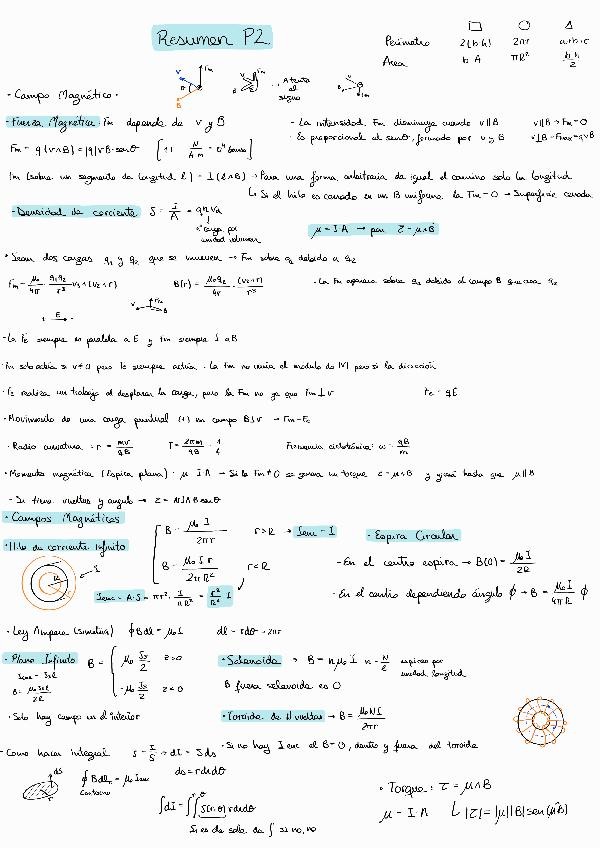 Resumen P2
Perímetro 2(b+h) 2πr a+b+c
Area b·A πR² b·h/2
· Campo Magnético ·
· Fuerza Magnética: Fm depende de v y B
Fm = q(v∧B) = |q|vB·senθ
- La intensidad Fm disminuye cuando v∥B v∥B → Fm=0
- Es proporcional al senθ, formado por v y B v⊥B → Fmax=qvB
Fm (sobre un segmento de longitud l) = I(l∧B) → Para una forma arbitraria da igual el camino solo la longitud
↳ Si el hilo es cerrado en un B uniforme la Fm=0 → Superficie cerrada
- Densidad de corriente S = I/A = qnVd
carga por
unidad volumen
μ = I·A → par τ = μ∧B
· Sean dos cargas q₁ y q₂ que se mueven → Fm sobre q₂ debido a q₂
Fm = μ₀/4π · q₁q₂/r³ v₁∧(v₂∧r) B(r) = μ₀q₂/4π · (v₂∧r)/r³
- La Fm aparece sobre q₁ debido al campo B que crea q₂
E
- La Fe siempre es paralela a E y Fm siempre ⊥ a B
Fm solo actúa si v≠0 pero Fe siempre actúa. La Fm no varía el módulo de |V| pero si la dirección
· Fe realiza un trabajo al desplazar la carga, pero la Fm no ya que Fm⊥v Fe = qE
· Movimiento de una carga puntual (+) en campo B⊥v → Fm=Fc
· Radio curvatura → r = mv/qB T = 2πm/qB Frecuencia ciclotrónica: ω = qB/m
· Momento magnético (Espira plana): μ = I·A → Si la Fm≠0 se genera un torque τ = μ∧B y girará hasta que μ∥B
- Si tiene vueltas y angulo → τ = NIAB senθ
· Campos Magnéticos
· Hilo de corriente Infinito
B = μ₀I/2πr r>R → Ienc = I
B = μ₀Ir/2πR² r<R
Ienc = A·S = πr² · I/πR² = r²/R² I
· Espira Circular
- En el centro espira → B(0) = μ₀I/2R
- En el centro dependiendo ángulo ϕ → B = μ₀I/4πR ϕ
· Ley Ampere (simetria) ∮Bdl = μ₀I dl = rdθ → 2πr
· Plano Infinito B = μ₀ Js/2 z>0
-μ₀ Js/2 z<0
· Solenoide → B = nμ₀I n = N/l espiras por
unidad longitud
B fuera solenoide es 0
- Solo hay campo en el interior
· Toroide de N vueltas → B = μ₀NI/2πr
· Si no hay Ienc el B=0, dentro y fuera del toroide
- Como hacer integral S = I/S → dI = Sds
ds
∮Bdl = μ₀Ienc
Contorno
ds = rdrdθ
∫dI = ∫∫S(r,θ)rdrdθ
Si es de sale da ∫ si no, no
· Torque: τ = μ∧B
μ = I·A ↳ |τ| = |μ||B|sen(μB)